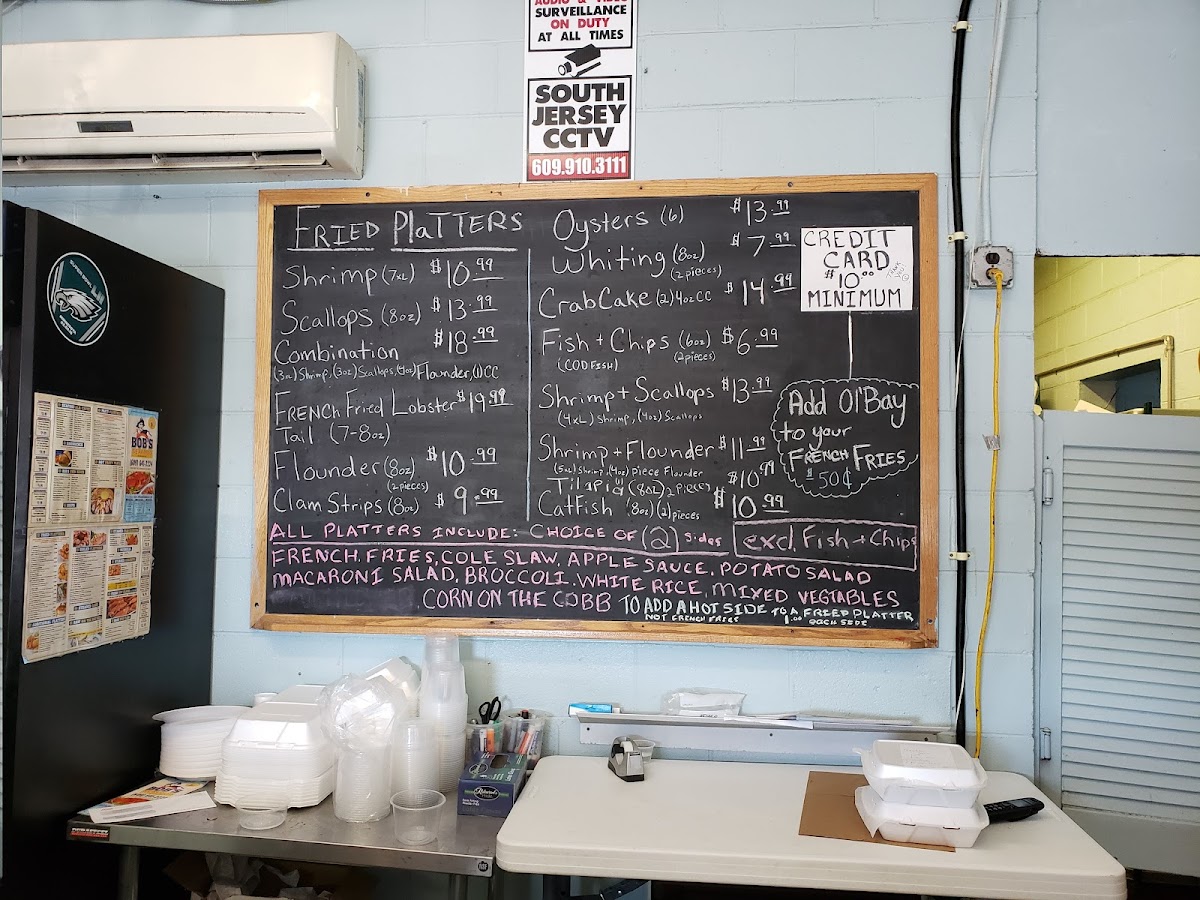 AUDIO & VIDEO
SURVEILLANCE
ON DUTY
AT ALL TIMES
SOUTH
JERSEY
CCTV
609.910.3111
FRIED PLATTERS
Shrimp (7XL) $10.99
Scallops (8oz) $13.99
Combination $18.99
Flounder, (1) CC
FRENCH Fried Lobster $19.99
Tail (7-8oz)
Flounder (8oz) $10.99
(2 pieces)
Clam Strips (8oz) $9.99
Oysters (6) $13.99
Whiting (8oz) $7.99
(2 pieces)
CrabCake (2) 4oz CC $14.99
Fish + Chips (6oz) $6.99
(2 pieces)
(CODFISH)
Shrimp + Scallops $13.99
(4XL) Shrimp, (4oz) Scallops
Shrimp + Flounder $11.99
(5XL) Shrimp, (4oz) piece Flounder
Tilapia (8oz) 2 pieces $10.99
Catfish (8oz) (2) pieces $10.99
CREDIT
CARD
$10.00
MINIMUM
THANK
YOU
Add Ol'Bay
to your
FRENCH FRIES
$50¢
ALL PLATTERS INCLUDE: CHOICE OF (2) Sides
excl. Fish + Chips
FRENCH FRIES, COLE SLAW, APPLE SAUCE, POTATO SALAD
MACARONI SALAD, BROCCOLI, WHITE RICE, MIXED VEGTABLES
CORN ON THE COBB
TO ADD A HOT SIDE TO A FRIED PLATTER
NOT FRENCH FRIES 1.00 EACH SIDE
BOB'S